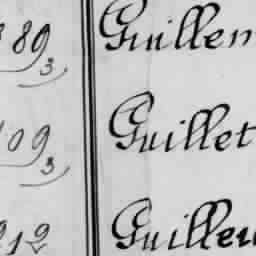 89 3 Guillem
109 3 Guillet
212 Guilleu